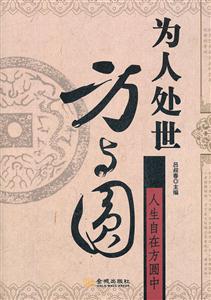 为人处世
方与圆
人生自在方圆中
吕叔春◎主编
金城出版社
GOLD WALL PRESS